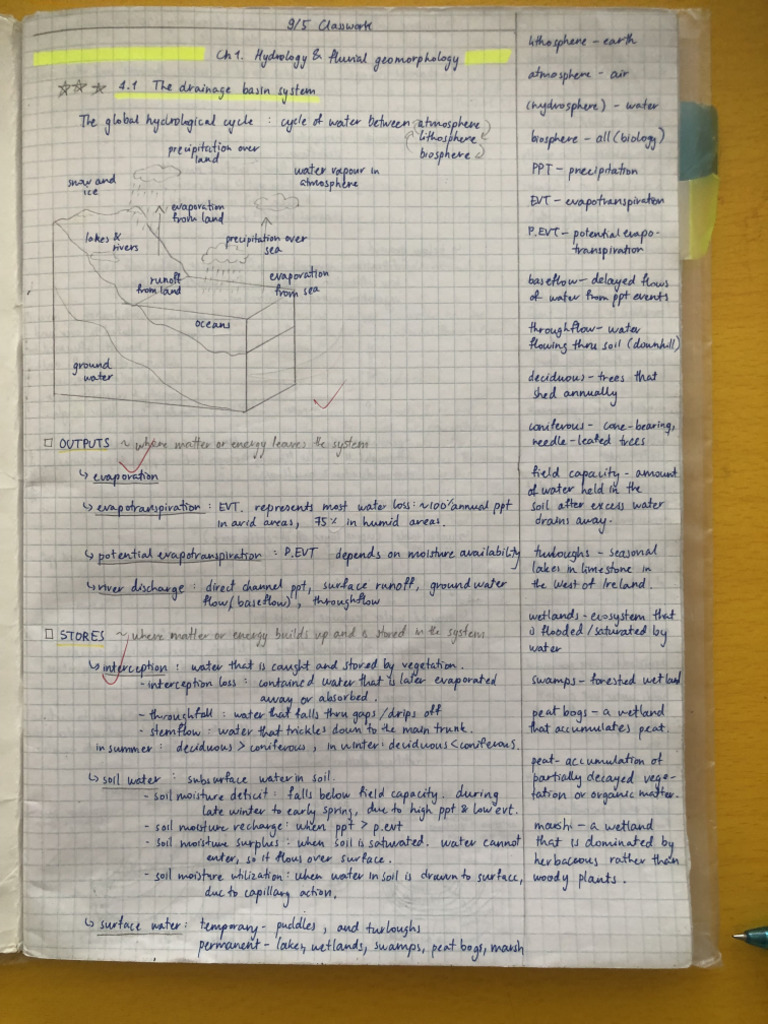 9/5 Classwork
Ch1. Hydrology & fluvial geomorphology
4.1 The drainage basin system
The global hydrological cycle : cycle of water between atmosphere
lithosphere
biosphere
precipitation over
land
snow and
ice
water vapour in
atmosphere
evaporation
from land
lakes &
rivers
precipitation over
sea
runoff
from land
evaporation
from sea
oceans
ground
water
OUTPUTS ~ where matter or energy leaves the system
↳ evaporation
↳ evapotranspiration : EVT. represents most water loss: ~100% annual ppt
in arid areas, 75% in humid areas.
↳ potential evapotranspiration : P.EVT depends on moisture availability
↳ river discharge : direct channel ppt, surface runoff, groundwater
flow (baseflow), throughflow
STORES ~ where matter or energy builds up and is stored in the system
↳ interception : water that is caught and stored by vegetation.
- interception loss : contained water that is later evaporated
away or absorbed.
- throughfall : water that falls thru gaps/drips off
- stemflow : water that trickles down to the main trunk.
in summer : deciduous > coniferous, in winter : deciduous < coniferous.
↳ soil water : subsurface water in soil.
- soil moisture deficit : falls below field capacity. during
late winter to early spring, due to high ppt & low evt.
- soil moisture recharge : when ppt > p.evt
- soil moisture surplus : when soil is saturated. water cannot
enter, so it flows over surface.
- soil moisture utilization : when water in soil is drawn to surface,
due to capillary action.
↳ surface water : temporary - puddles, and turloughs
permanent - lakes, wetlands, swamps, peat bogs, marsh
lithosphere - earth
atmosphere - air
(hydrosphere) - water
biosphere - all (biology)
PPT - precipitation
EVT - evapotranspiration
P.EVT - potential evapo-
transpiration
baseflow - delayed flows
of water from ppt events
throughflow - water
flowing thru soil (downhill)
deciduous - trees that
shed annually
coniferous - cone-bearing,
needle-leafed trees
field capacity - amount
of water held in the
soil after excess water
drains away.
turloughs - seasonal
lakes in limestone in
the West of Ireland.
wetlands - ecosystem that
is flooded/saturated by
water
swamps - forested wetland
peat bogs - a wetland
that accumulates peat.
peat - accumulation of
partially decayed vege-
tation or organic matter.
marsh - a wetland
that is dominated by
herbaceous rather than
woody plants.